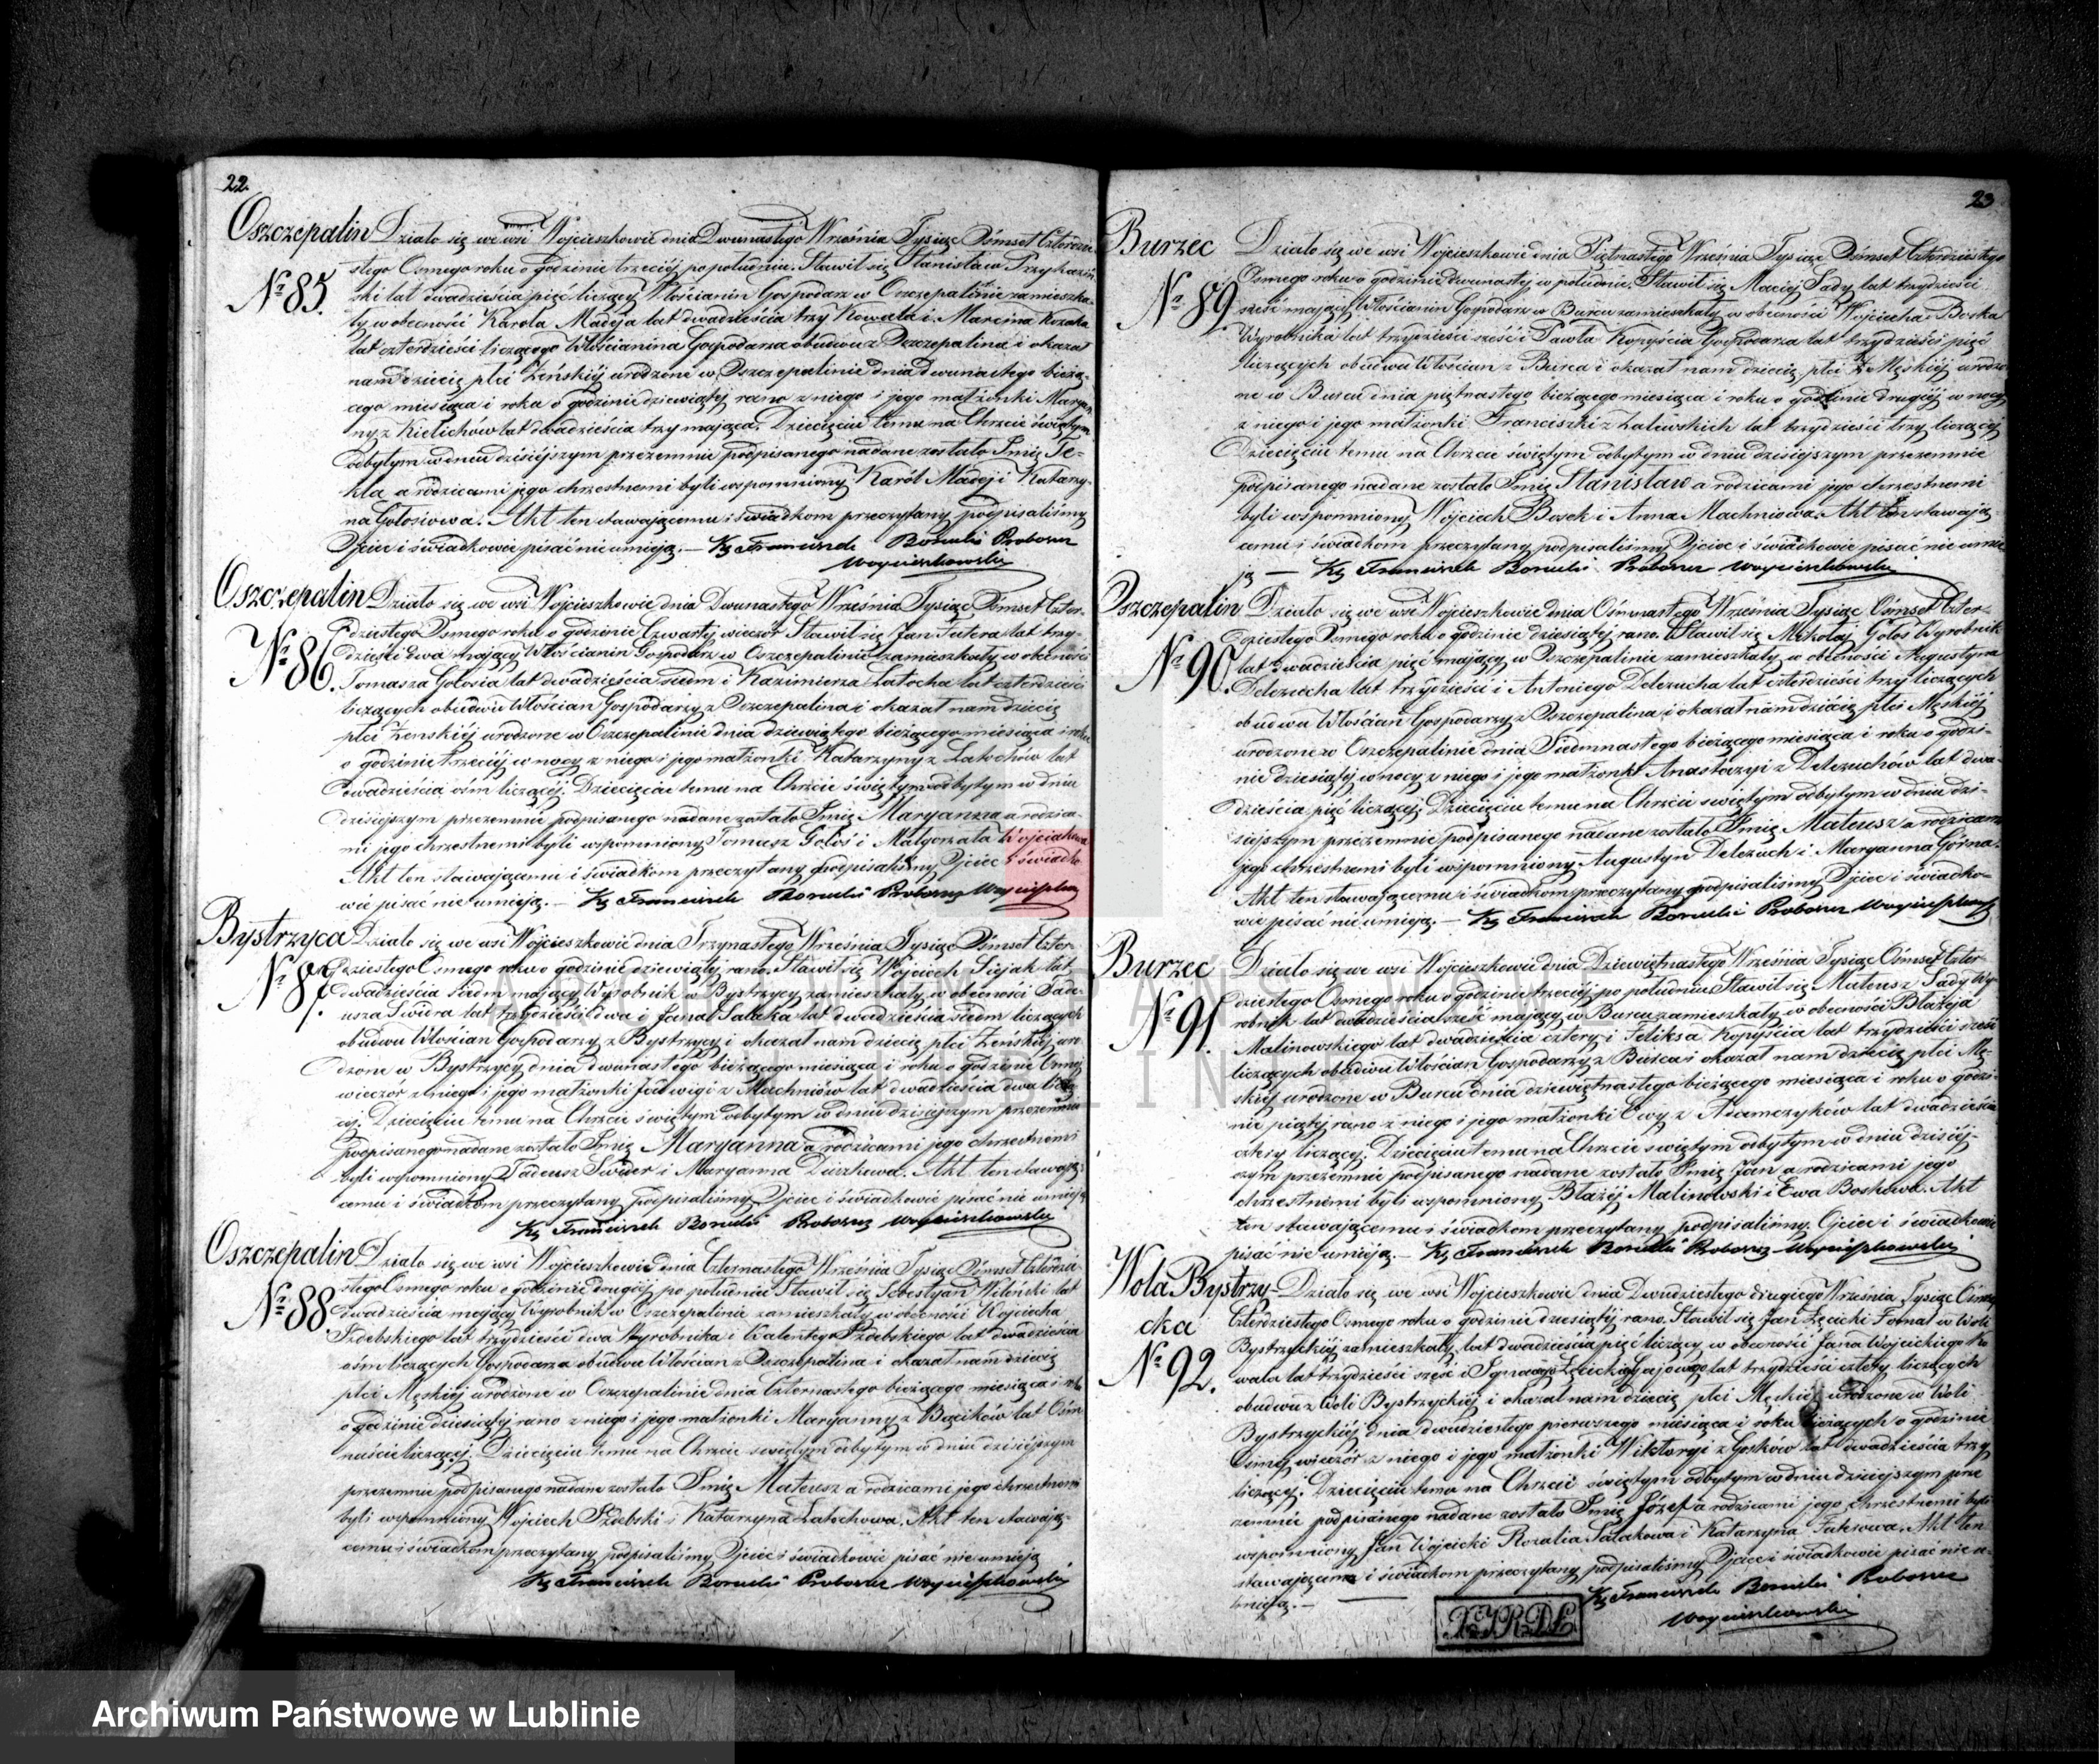 22.
Oszczepalin Działo się we wsi Wojcieszkowie dnia Dwunastego Września Tysiąc Ośmset Czterdzie-
stego Osmego roku o godzinie trzeciéj po południu. Stawił się Stanisław
№ 85. ski lat dwadzieścia pięć liczący Włościanin Gospodarz w Oszczepalinie zamieszka-
ły w obecności Karola Madeja lat dwadzieścia trzy Kowala i Marcina Kozaka
lat czterdzieści liczącego Włościanina Gospodarza obudwu z Oszczepalina i okazał
nam dziecię płci Żeńskiéj urodzone w Oszczepalinie dnia dwunastego bieżą-
cego miesiąca i roku o godzinie dziewiątéj rano z niego i jego małżonki Maryan-
ny z Kielichów lat dwadzieścia trzy mająca. Dziecięciu temu na Chrzcie świętym
odbytym w dniu dzisiejszym przezemnie podpisanego nadane zostało Imię Te-
kla, a rodzicami jego chrzestnemi byli wspomniony Karól Madej i Katarzy-
na Gołosiowa. Akt ten stawającemu i świadkom przeczytany podpisaliśmy
Ojciec i świadkowie pisać nie umieją. — Kś Franciszek Proboszcz
Wojcieszkowski
Oszczepalin Działo się we wsi Wojcieszkowie dnia Dwunastego Września Tysiąc Ośmset Czter-
dziestego Osmego roku o godzinie Czwartéj wieczór Stawił się Jan Futera lat trzy-
№ 86. dzieści dwa mający Włościanin Gospodarz w Oszczepalinie zamieszkały w obecności
Tomasza Gołosia lat dwadzieścia siedm i Kazimierza Latocha lat czterdzieści
liczących obudwu Włościan Gospodarzy z Oszczepalina i okazał nam dziecię
płci Żenskiéj urodzone w Oszczepalinie dnia dziewiątego bieżącego miesiąca i roku
o godzinie trzeciéj w nocy z niego i jego małżonki Katarzyny z Latochów lat
dwadzieścia ośm liczącéj. Dziecięciu temu na Chrzcie świętym odbytym w dniu
dzisiejszym przezemnie podpisanego nadane zostało Imię Maryanna a rodzica-
mi jego chrzestnemi byli wspomniony Tomasz Gołoś i Małgorzata Wojciakowa
Akt ten stawającemu i świadkom przeczytany podpisaliśmy Ojciec i świadko-
wie pisać nie umieją. — Kś Franciszek Proboszcz Wojcieszkow
Bystrzyca Działo się we wsi Wojcieszkowie dnia Trzynastego Września Tysiąc Ośmset Czter-
dziestego Osmego roku o godzinie dziewiątéj rano. Stawił się Wojciech lat
№ 87. dwadzieścia siedm mający Wyrobnik w Bystrzycy zamieszkały w obecności Tade-
usza Świdra lat trzydzieści dwa i Jana Sałaka lat dwadzieścia siedm liczących
obudwu Włościan Gospodarzy z Bystrzycy i okazał nam dziecię płci Żeńskiéj uro-
dzone w Bystrzycy dnia dwunastego bieżącego miesiąca i roku o godzinie Osméj
wieczór z niego i jego małżonki Jadwigi z Machniów lat dwadzieścia dwa liczą-
céj. Dziecięciu temu na Chrzcie świętym odbytym w dniu dzisiejszym przezemnie
podpisanego nadane zostało Imię Maryanna a rodzicami jego chrzestnemi
byli wspomniony Tadeusz Świder i Maryanna. Akt ten stawają-
cemu i świadkom przeczytany podpisaliśmy Ojciec i świadkowie pisać nie umieją
Kś Franciszek Proboszcz Wojcieszkowski
Oszczepalin Działo się we wsi Wojcieszkowie dnia Czternastego Września Tysiąc Ośmset Czterdzie-
stego Osmego roku o godzinie drugiéj po południu Stawił się Sebestyan lat
№ 88 dwadzieścia mający Wyrobnik w Oszczepalinie zamieszkały w obecności Wojciecha
Izdebskiego lat trzydzieści dwa Wyrobnika i Walentego Izdebskiego lat dwadzieścia
ośm liczących Gospodarza obudwu Włościan z Oszczepalina i okazał nam dziecię
płci Męskiéj urodzone w Oszczepalinie dnia Czternastego bieżącego miesiąca i roku
o godzinie dziesiątéj rano z niego i jego małżonki Maryanny z Bącików lat Ośm-
naście liczącéj. Dziecięciu temu na Chrzcie świętym odbytym w dniu dzisiejszym
przezemnie podpisanego nadane zostało Imię Mateusz a rodzicami jego chrzestnemi
byli wspomniony Wojciech Izdebski i Katarzyna Latochowa. Akt ten stawają-
cemu i świadkom przeczytany podpisaliśmy Ojciec i świadkowie pisać nie umieją
Kś Franciszek Proboszcz Wojcieszkowski
23
Burzec Działo się we wsi Wojcieszkowie dnia Piętnastego Września Tysiąc Ośmset Czterdziestego
Osmego roku o godzinie dwunastéj w południe. Stawił się Maciéj Sady lat trzydzieści
№ 89 sześć mający Włościanin Gospodarz w Burcu zamieszkały w obecności Wojciecha Boska
Wyrobnika lat trzydzieści sześć i Pawła Kopyścia Gospodarza lat trzydzieści pięć
liczących obudwu Włościan z Burca i okazał nam dziecię płci Męskiéj urodzo-
ne w Burcu dnia piętnastego bieżącego miesiąca i roku o godzinie drugiéj w nocy
z niego i jego małżonki Franciszki z Zalewskich lat trzydzieści trzy liczącéj
Dziecięciu temu na Chrzcie świętym odbytym w dniu dzisiejszym przezemnie
podpisanego nadane zostało Imię Stanisław a rodzicami jego chrzestnemi
byli wspomniony Wojciech Bosek i Anna Machniowa. Akt ten stawają-
cemu i świadkom przeczytany podpisaliśmy Ojciec i świadkowie pisać nie umie-
ją — Kś Franciszek Proboszcz Wojcieszkowski
Oszczepalin Działo się we wsi Wojcieszkowie dnia Ośmnastego Września Tysiąc Ośmset Czter-
dziestego Osmego roku o godzinie dziesiątéj rano. Stawił się Mikołaj Gołoś Wyrobnik
№ 90. lat dwadzieścia pięć mający w Oszczepalinie zamieszkały w obecności Augustyna
Delezucha lat trzydzieści i Antoniego Delezucha lat czterdzieści trzy liczących
obudwu Włościan Gospodarzy z Oszczepalina i okazał nam dziecię płci Męskiéj
urodzone w Oszczepalinie dnia Siedmnastego bieżącego miesiąca i roku o godzi-
nie dziesiątéj w nocy z niego i jego małżonki Anastazyi z Delezuchów lat dwa-
dzieścia pięć liczącéj. Dziecięciu temu na Chrzcie świętym odbytym w dniu dzi-
siejszym przezemnie podpisanego nadane zostało Imię Mateusz a rodzicami
jego chrzestnemi byli wspomniony Augustyn Delezuch i Maryanna Górna.
Akt ten stawającemu i świadkom przeczytany podpisaliśmy Ojciec i świadko-
wie pisać nie umieją. — Kś Franciszek Proboszcz Wojcieszkowski
Burzec Działo się we wsi Wojcieszkowie dnia Dziewiętnastego Września Tysiąc Ośmset Czter-
dziestego Osmego roku o godzinie trzeciéj po południu. Stawił się Mateusz Sady Wy-
№ 91. robnik lat dwadzieścia sześć mający w Burcu zamieszkały w obecności Błażeja
Malinowskiego lat dwadzieścia cztery i Feliksa Kopyścia lat trzydzieści sześć
liczących obudwu Włościan Gospodarzy z Burca i okazał nam dziecię płci Mę-
skiéj urodzone w Burcu dnia dziewiętnastego bieżącego miesiąca i roku o godzi-
nie piątéj rano z niego i jego małżonki Ewy z Adamczyków lat dwadzieścia
cztery liczącéj. Dziecięciu temu na Chrzcie świętym odbytym w dniu dzisiéj-
szym przezemnie podpisanego nadane zostało Imię Jan a rodzicami jego
chrzestnemi byli wspomniony Błażéj Malinowski i Ewa Boskowa. Akt
ten stawającemu i świadkom przeczytany podpisaliśmy. Ojciec i świadkowie
pisać nie umieją. — Kś Franciszek Proboszcz Wojcieszkowski
Wola Bystrzy- Działo się we wsi Wojcieszkowie dnia Dwudziestego drugiego Września Tysiąc Ośmset
cka Czterdziestego Osmego roku o godzinie dziesiątéj rano. Stawił się Jan Łęcicki Fornal w Woli
Bystrzyckiéj zamieszkały lat dwadzieścia pięć liczący w obecności Jana Wojcickiego Ko-
№ 92. wala lat trzydzieści sześć i Ignacego Gajowego lat trzydzieści cztery liczących
obudwu z Woli Bystrzyckiéj i okazał nam dziecię płci Męskiéj urodzone w Woli
Bystrzyckiéj dnia dwudziestego pierwszego miesiąca i roku bieżących o godzinie
Osméj wieczór z niego i jego małżonki Wiktoryi z Gosków lat dwadzieścia trzy
liczącéj. Dziecięciu temu na Chrzcie świętym odbytym w dniu dzisiejszym prze-
zemnie podpisanego nadane zostało Imię Józef a rodzicami jego chrzestnemi byli
wspomniony Jan Wojcicki Rozalia Sałakowa i Katarzyna. Akt ten
stawającemu i świadkom przeczytany podpisaliśmy Ojciec i świadkowie pisać nie u-
mieją. — Kś Franciszek Proboszcz
Wojcieszkowski
ARCHIWUM PAŃSTWOWE
W LUBLINIE
Archiwum Państwowe w Lublinie